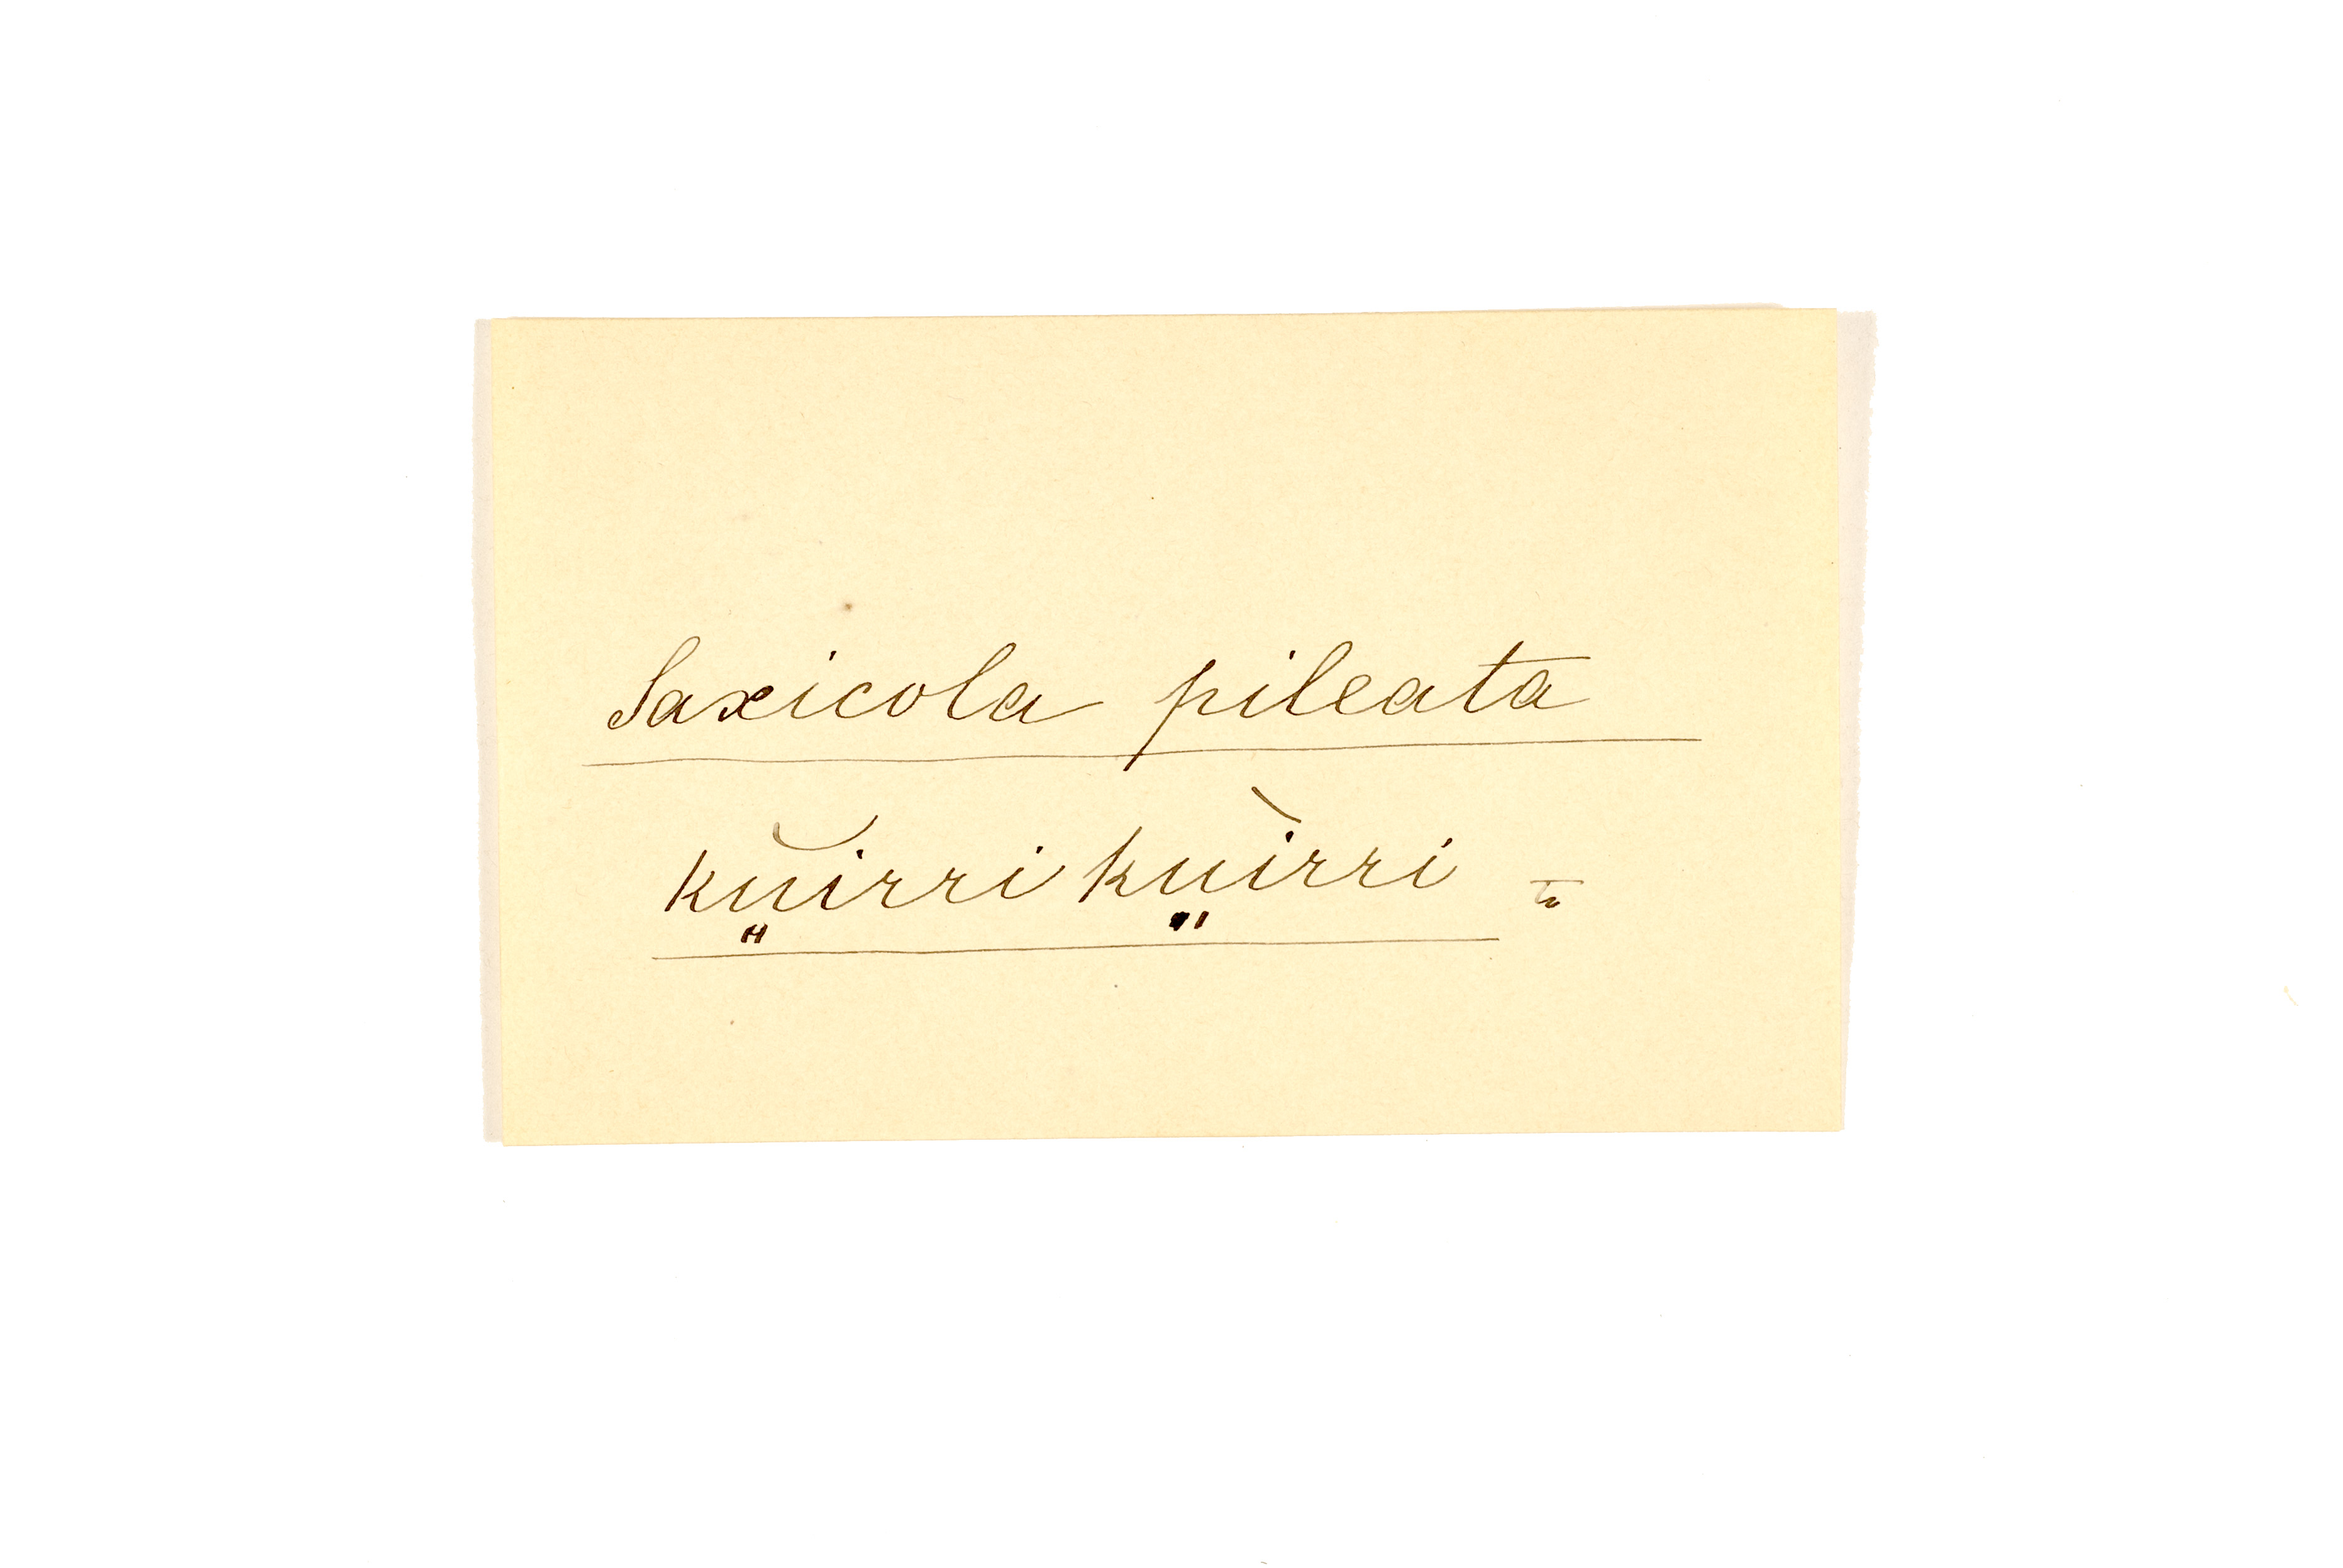 Saxicola pileata
kṳ̆irri kṳ̀irri =